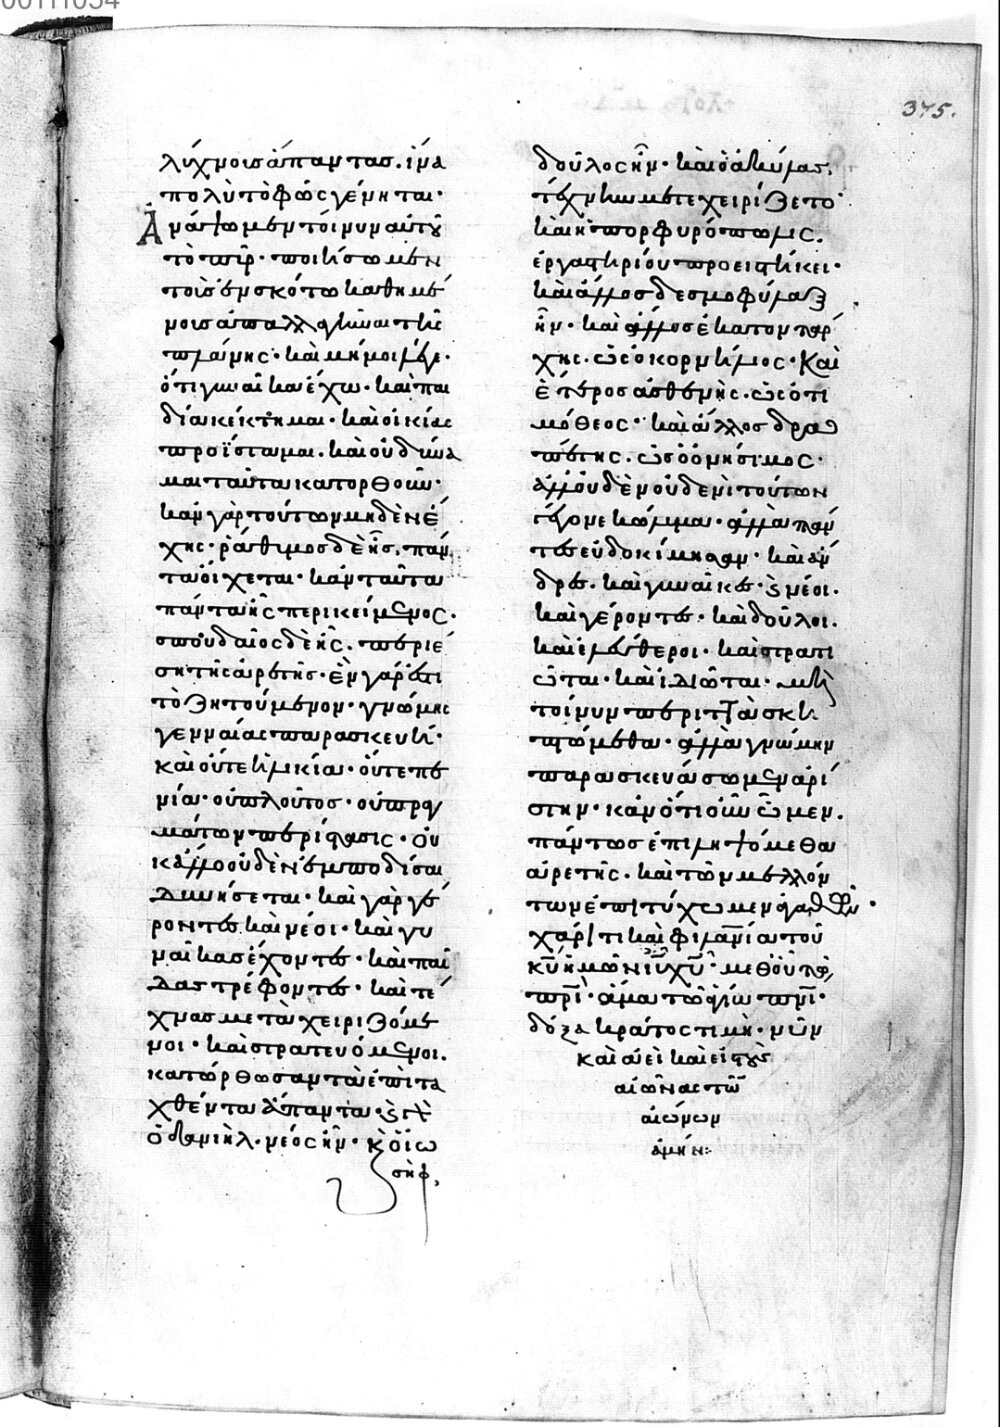 00111054
375.
λύχνοις ἅπαντας. ἵνα
πολὺ τὸ φῶς γένηται·
Ἀνάψωμεν τοίνυν αὐτοῦ
τὸ πῦρ· ποιήσωμεν
τοῖς ἐν σκότω καθημέ
νοις ἀπαλλαγῆναι τῆς
πλάνης· καὶ μή μοι λέγε·
ὅτι γυναῖκα ἔχω· καὶ παι
δία κέκτημαι· καὶ οἰκίας
προΐσταμαι. καὶ οὐ δύνα
μαι ταῦτα κατορθοῦν·
κἂν γὰρ τούτων μηδὲν ἔ
χης· ῥάθυμος δὲ ἦς. πάν
τα οἴχεται· κἂν ταῦτα
πάντα ἦς περικείμενος.
σπουδαῖος δὲ ἦς. περιέ
ση τῆς ἀρετῆς· ἓν γάρ ἐστι
τὸ ζητούμενον· γνώμης
γενναίας παρασκευή·
καὶ οὔτε ἡλικία· οὔτε πε
νία· οὐ πλοῦτος· οὐ πραγ
μάτων περίστασις· οὐ
κ ἄλλο οὐδὲν ἐμποδίσαι
δυνήσεται· καὶ γὰρ γέ
ροντες καὶ νέοι· καὶ γυ
ναῖκας ἔχοντες· καὶ παῖ
δας τρέφοντες· καὶ τέ
χνας μεταχειριζόμε
νοι· καὶ στρατευόμενοι.
κατώρθωσαν τὰ ἐπιτα
χθέντα ἅπαντα·
ὁ δανιὴλ. νέος ἦν· κ ὁ ἰω
σὴφ,
δοῦλος ἦν· καὶ ὁ ἀκύλας.
τέχνην μετεχειρίζετο·
καὶ ἡ πορφυρόπωλις.
ἐργαστηρίου προειστήκει·
καὶ ἄλλος δεσμοφύλαξ
ἦν· καὶ ἄλλος ἑκατοντάρ
χης. ὡς ὁ κορνήλιος· Καὶ
ἕτερος ἀσθενής. ὡς ὁ τι
μόθεος· καὶ ἄλλος δρα
πέτης. ὡς ὁ ὀνήσιμος·
ἀλλ οὐδὲν οὐδενὶ τούτων
γέγονε κώλυμα· ἀλλὰ πάν
τες εὐδοκίμησαν· καὶ ἄν
δρες. καὶ γυναῖκες· νέοι.
καὶ γέροντες· καὶ δοῦλοι.
καὶ ἐλεύθεροι· καὶ στρατι
ῶται· καὶ ἰδιῶται· μὴ
τοίνυν περιττὰ σκη
πτώμεθα· ἀλλὰ γνώμην
παρασκευάσωμεν ἀρί
στην· κἂν ὁτιοῦν ὦμεν.
πάντως ἐπιληψόμεθα
ἀρετῆς· καὶ τῶν μελλόν
των ἐπιτύχωμεν ἀγαθῶν·
χάριτι καὶ φιλανία τοῦ
κῦ ἡμῶν ιῦ χῦ· μεθ οὗ τῶ
πρὶ· ἅμα τῶ ἁγίω πνι·
δόξα κράτος τιμὴ· νῦν
καὶ ἀεὶ καὶ εἰς τοὺς
αἰῶνας τῶν
αἰώνων
ἀμήν: